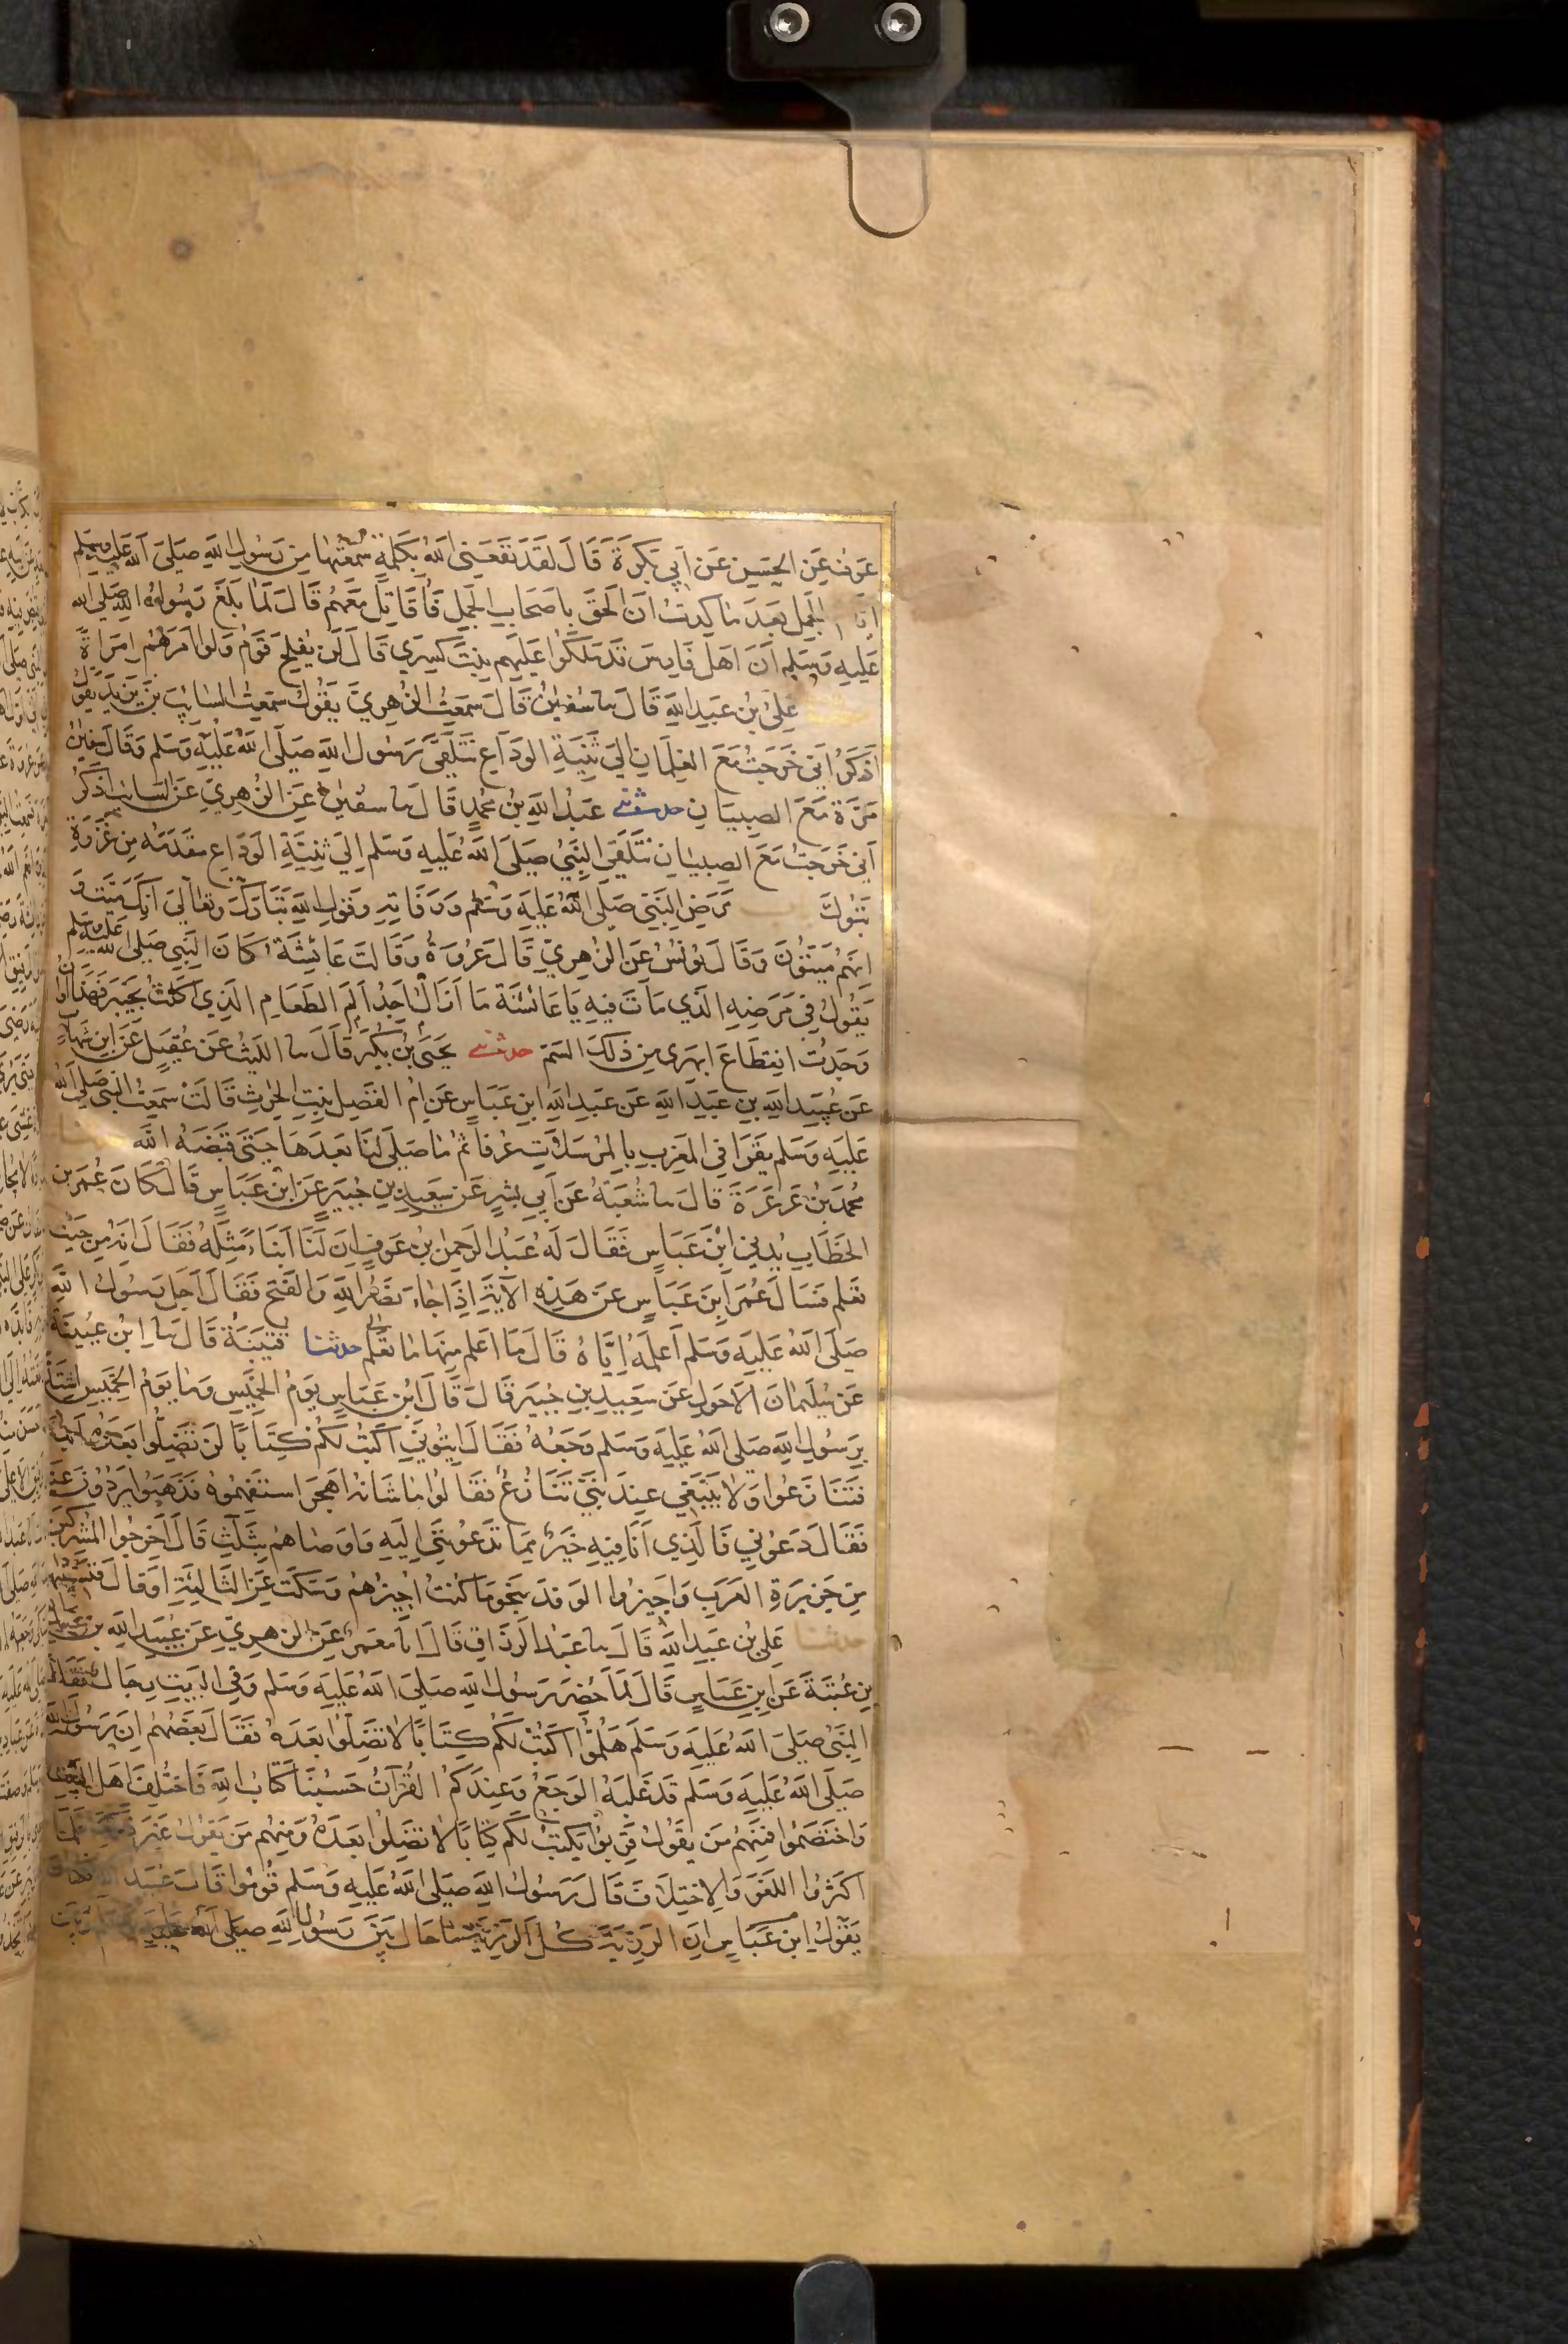 عَوْفٌ عَنِ الْحَسَنِ عَنْ أَبِي بَكْرَةَ قَالَ لَقَدْ نَفَعَنِي اللَّهُ بِكَلِمَةٍ سَمِعْتُهَا مِنْ رَسُولِ اللَّهِ صَلَّى اللَّهُ عَلَيْهِ وَسَلَّمَ
الْجَمَلِ بَعْدَ مَا كِدْتُ أَنْ أَلْحَقَ بِأَصْحَابِ الْجَمَلِ فَأُقَاتِلَ مَعَهُمْ قَالَ لَمَّا بَلَغَ رَسُولَ اللَّهِ صَلَّى اللَّهُ
عَلَيْهِ وَسَلَّمَ أَنَّ أَهْلَ فَارِسَ قَدْ مَلَّكُوا عَلَيْهِمْ بِنْتَ كِسْرَى قَالَ لَنْ يُفْلِحَ قَوْمٌ وَلَّوْا أَمْرَهُمْ امْرَأَةً
عَلِيُّ بْنُ عَبْدِ اللَّهِ قَالَ نا سُفْيٰنُ قَالَ سَمِعْتُ الزُّهْرِيَّ يَقُولُ سَمِعْتُ السَّايِبَ بْنَ يَزِيدَ يَقُولُ
أَذْكُرُ أَنِّي خَرَجْتُ مَعَ الْغِلْمَانِ إِلَى ثَنِيَّةِ الْوَدَاعِ نَتَلَقَّى رَسُولَ اللَّهِ صَلَّى اللَّهُ عَلَيْهِ وَسَلَّمَ وَقَالَ سُفْيٰنُ
مَرَّةً مَعَ الصِّبْيَانِ حدثني عَبْدُ اللَّهِ بْنُ مُحَمَّدٍ قَالَ نا سُفْيٰنُ عَنِ الزُّهْرِيِّ عَنِ السَّايِبِ أَذْكُرُ
أَنِّي خَرَجْتُ مَعَ الصِّبْيَانِ نَتَلَقَّى النَّبِيَّ صَلَّى اللَّهُ عَلَيْهِ وَسَلَّمَ إِلَى ثَنِيَّةِ الْوَدَاعِ مَقْدَمَهُ مِنْ غَزْوَةِ
تَبُوكَ مَرَضِ النَّبِيِّ صَلَّى اللَّهُ عَلَيْهِ وَسَلَّمَ وَوَفَاتِهِ وَقَوْلِ اللَّهِ تَبَارَكَ وَتَعَالَى إِنَّكَ مَيِّتٌ وَ
إِنَّهُمْ مَيِّتُونَ وَقَالَ يُونُسُ عَنِ الزُّهْرِيِّ قَالَ عُرْوَةُ وَقَالَتْ عَائِشَةُ كَانَ النَّبِيُّ صَلَّى اللَّهُ عَلَيْهِ وَسَلَّمَ
يَقُولُ فِي مَرَضِهِ الَّذِي مَاتَ فِيهِ يَا عَائِشَةُ مَا أَزَالُ أَجِدُ أَلَمَ الطَّعَامِ الَّذِي أَكَلْتُ بِخَيْبَرَ فَهَذَا أَوَانُ
وَجَدْتُ انْقِطَاعَ أَبْهَرِي مِنْ ذَلِكَ السَّمِّ حدثني يَحْيَى بْنُ بُكَيْرٍ قَالَ نا اللَّيْثُ عَنْ عُقَيْلٍ عَنِ ابْنِ شِهَابٍ
عَنْ عُبَيْدِ اللَّهِ بْنِ عَبْدِ اللَّهِ عَنْ عَبْدِ اللَّهِ ابْنِ عَبَّاسٍ عَنْ أُمِّ الْفَضْلِ بِنْتِ الْحٰرِثِ قَالَتْ سَمِعْتُ النَّبِيَّ صَلَّى اللَّهُ
عَلَيْهِ وَسَلَّمَ يَقْرَأُ فِي الْمَغْرِبِ بِالْمُرْسَلَاتِ عُرْفًا ثُمَّ مَا صَلَّى لَنَا بَعْدَهَا حَتَّى قَبَضَهُ اللَّهُ
مُحَمَّدُ بْنُ عَرْعَرَةَ قَالَ نا شُعْبَةُ عَنْ أَبِي بِشْرٍ عَنْ سَعِيدِ بْنِ جُبَيْرٍ عَنِ ابْنِ عَبَّاسٍ قَالَ كَانَ عُمَرُ بْنُ
الْخَطَّابِ يُدْنِي ابْنَ عَبَّاسٍ فَقَالَ لَهُ عَبْدُ الرَّحْمٰنِ بْنُ عَوْفٍ إِنَّ لَنَا أَبْنَاءً مِثْلَهُ فَقَالَ إِنَّهُ مِنْ حَيْثُ
تَعْلَمُ فَسَأَلَ عُمَرُ ابْنَ عَبَّاسٍ عَنْ هَذِهِ الْآيَةِ إِذَا جَاءَ نَصْرُ اللَّهِ وَالْفَتْحُ فَقَالَ أَجَلُ رَسُولِ اللَّهِ
صَلَّى اللَّهُ عَلَيْهِ وَسَلَّمَ أَعْلَمَهُ إِيَّاهُ قَالَ مَا أَعْلَمُ مِنْهَا إِلَّا مَا تَعْلَمُ حدثنا قُتَيْبَةُ قَالَ نا ابْنُ عُيَيْنَةَ
عَنْ سُلَيْمَانَ الْأَحْوَلِ عَنْ سَعِيدِ بْنِ جُبَيْرٍ قَالَ قَالَ ابْنُ عَبَّاسٍ يَوْمُ الْخَمِيسِ وَمَا يَوْمُ الْخَمِيسِ اشْتَدَّ
بِرَسُولِ اللَّهِ صَلَّى اللَّهُ عَلَيْهِ وَسَلَّمَ وَجَعُهُ فَقَالَ ايتُونِي أَكْتُبْ لَكُمْ كِتَابًا لَنْ تَضِلُّوا بَعْدَهُ أَبَدًا
فَتَنَازَعُوا وَلَا يَنْبَغِي عِنْدَ نَبِيٍّ تَنَازُعٌ فَقَالُوا مَا شَأْنُهُ أَهَجَرَ اسْتَفْهِمُوهُ فَذَهَبُوا يَرُدُّونَ عَنْهُ
فَقَالَ دَعُونِي فَالَّذِي أَنَا فِيهِ خَيْرٌ مِمَّا تَدْعُونَنِي إِلَيْهِ وَأَوْصَاهُمْ بِثَلٰثٍ قَالَ أَخْرِجُوا الْمُشْرِكِينَ
مِنْ جَزِيرَةِ الْعَرَبِ وَأَجِيزُوا الْوَفْدَ بِنَحْوِ مَا كُنْتُ أُجِيزُهُمْ وَسَكَتَ عَنِ الثَّالِثَةِ أَوْ قَالَ فَنَسِيتُهَا
حدثنا عَلِيُّ بْنُ عَبْدِ اللَّهِ قَالَ نا عَبْدُ الرَّزَّاقِ قَالَ أَنَا مَعْمَرٌ عَنِ الزُّهْرِيِّ عَنْ عُبَيْدِ اللَّهِ بْنِ عَبْدِ اللَّهِ
بْنِ عُتْبَةَ عَنِ ابْنِ عَبَّاسٍ قَالَ لَمَّا حُضِرَ رَسُولُ اللَّهِ صَلَّى اللَّهُ عَلَيْهِ وَسَلَّمَ وَفِي الْبَيْتِ رِجَالٌ فَقَالَ
النَّبِيُّ صَلَّى اللَّهُ عَلَيْهِ وَسَلَّمَ هَلُمُّوا أَكْتُبْ لَكُمْ كِتَابًا لَا تَضِلُّوا بَعْدَهُ فَقَالَ بَعْضُهُمْ إِنَّ رَسُولَ اللَّهِ
صَلَّى اللَّهُ عَلَيْهِ وَسَلَّمَ قَدْ غَلَبَهُ الْوَجَعُ وَعِنْدَكُمُ الْقُرْآنُ حَسْبُنَا كِتَابُ اللَّهِ فَاخْتَلَفَ أَهْلُ الْبَيْتِ
وَاخْتَصَمُوا فَمِنْهُمْ مَنْ يَقُولُ قَرِّبُوا يَكْتُبْ لَكُمْ كِتَابًا لَا تَضِلُّوا بَعْدَهُ وَمِنْهُمْ مَنْ يَقُولُ غَيْرَ ذَلِكَ فَلَمَّا
أَكْثَرُوا اللَّغْوَ وَالِاخْتِلَافَ قَالَ رَسُولُ اللَّهِ صَلَّى اللَّهُ عَلَيْهِ وَسَلَّمَ قُومُوا قَالَ عُبَيْدُ اللَّهِ فَكَانَ
يَقُولُ ابْنُ عَبَّاسٍ إِنَّ الرَّزِيَّةَ كُلَّ الرَّزِيَّةِ مَا حَالَ بَيْنَ رَسُولِ اللَّهِ صَلَّى اللَّهُ عَلَيْهِ